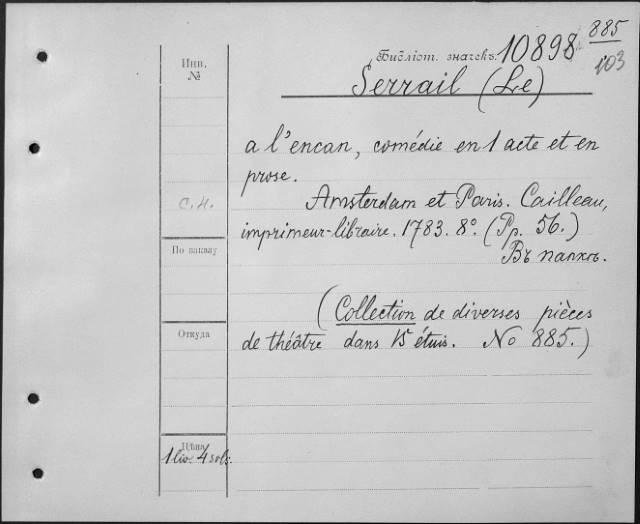 885
Библіот. значекъ. 10898
103
Инв.
№
Serrail (Le)
a l'encan, comédie en 1 acte et en
prose.
С.Н.
Amsterdam et Paris. Cailleau,
imprimeur-libraire. 1783. 8º. (Pp. 56.)
По заказу
Въ папкѣ.
(Collection de diverses pièces
Откуда
de théâtre dans 15 étuis. No 885.)
Цѣна
1 liv. 4 sols.